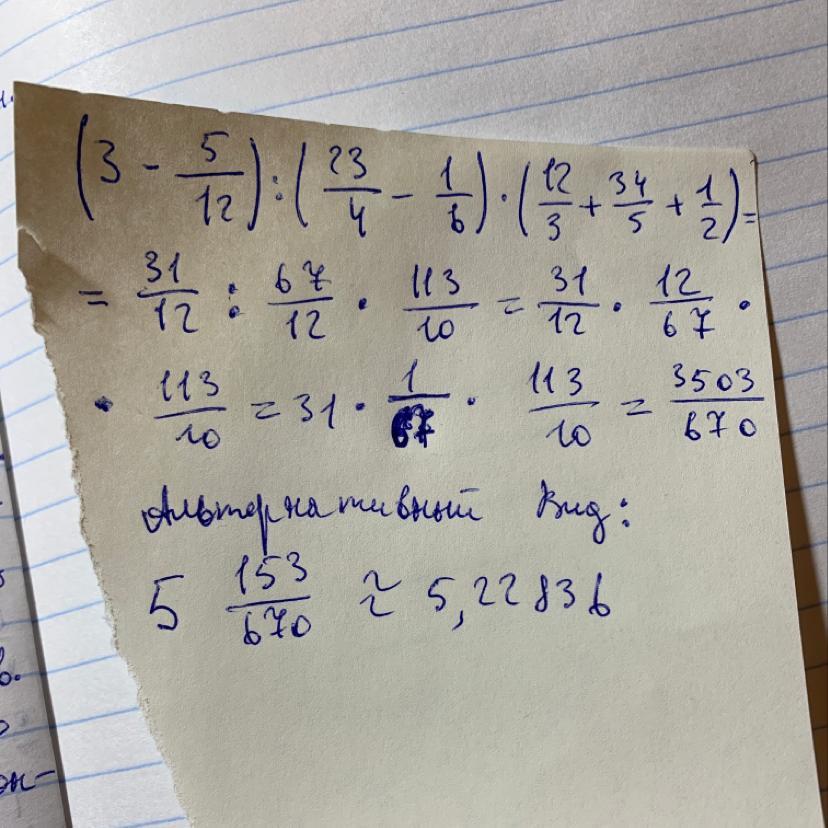 (3 - 5/12) : (23/4 - 1/6) · (12/3 + 34/5 + 1/2) =
= 31/12 : 67/12 · 113/10 = 31/12 · 12/67 ·
· 113/10 = 31 · 1/67 · 113/10 = 3503/670
Альтернативный вид:
5 153/670 ≈ 5,22836